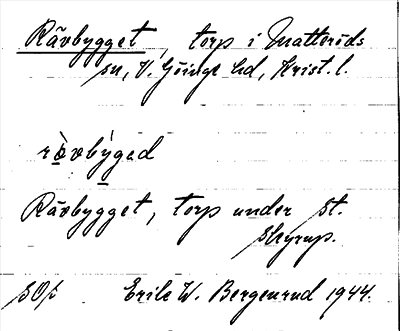 Rävbygget, torp i Matteröds
sn, V. Göinge hd, Krist. l.
rò̱vbỳged
Rävbygget, torp under St.
Skyrup.
SOfs
Erik W. Bergenrud 1944.